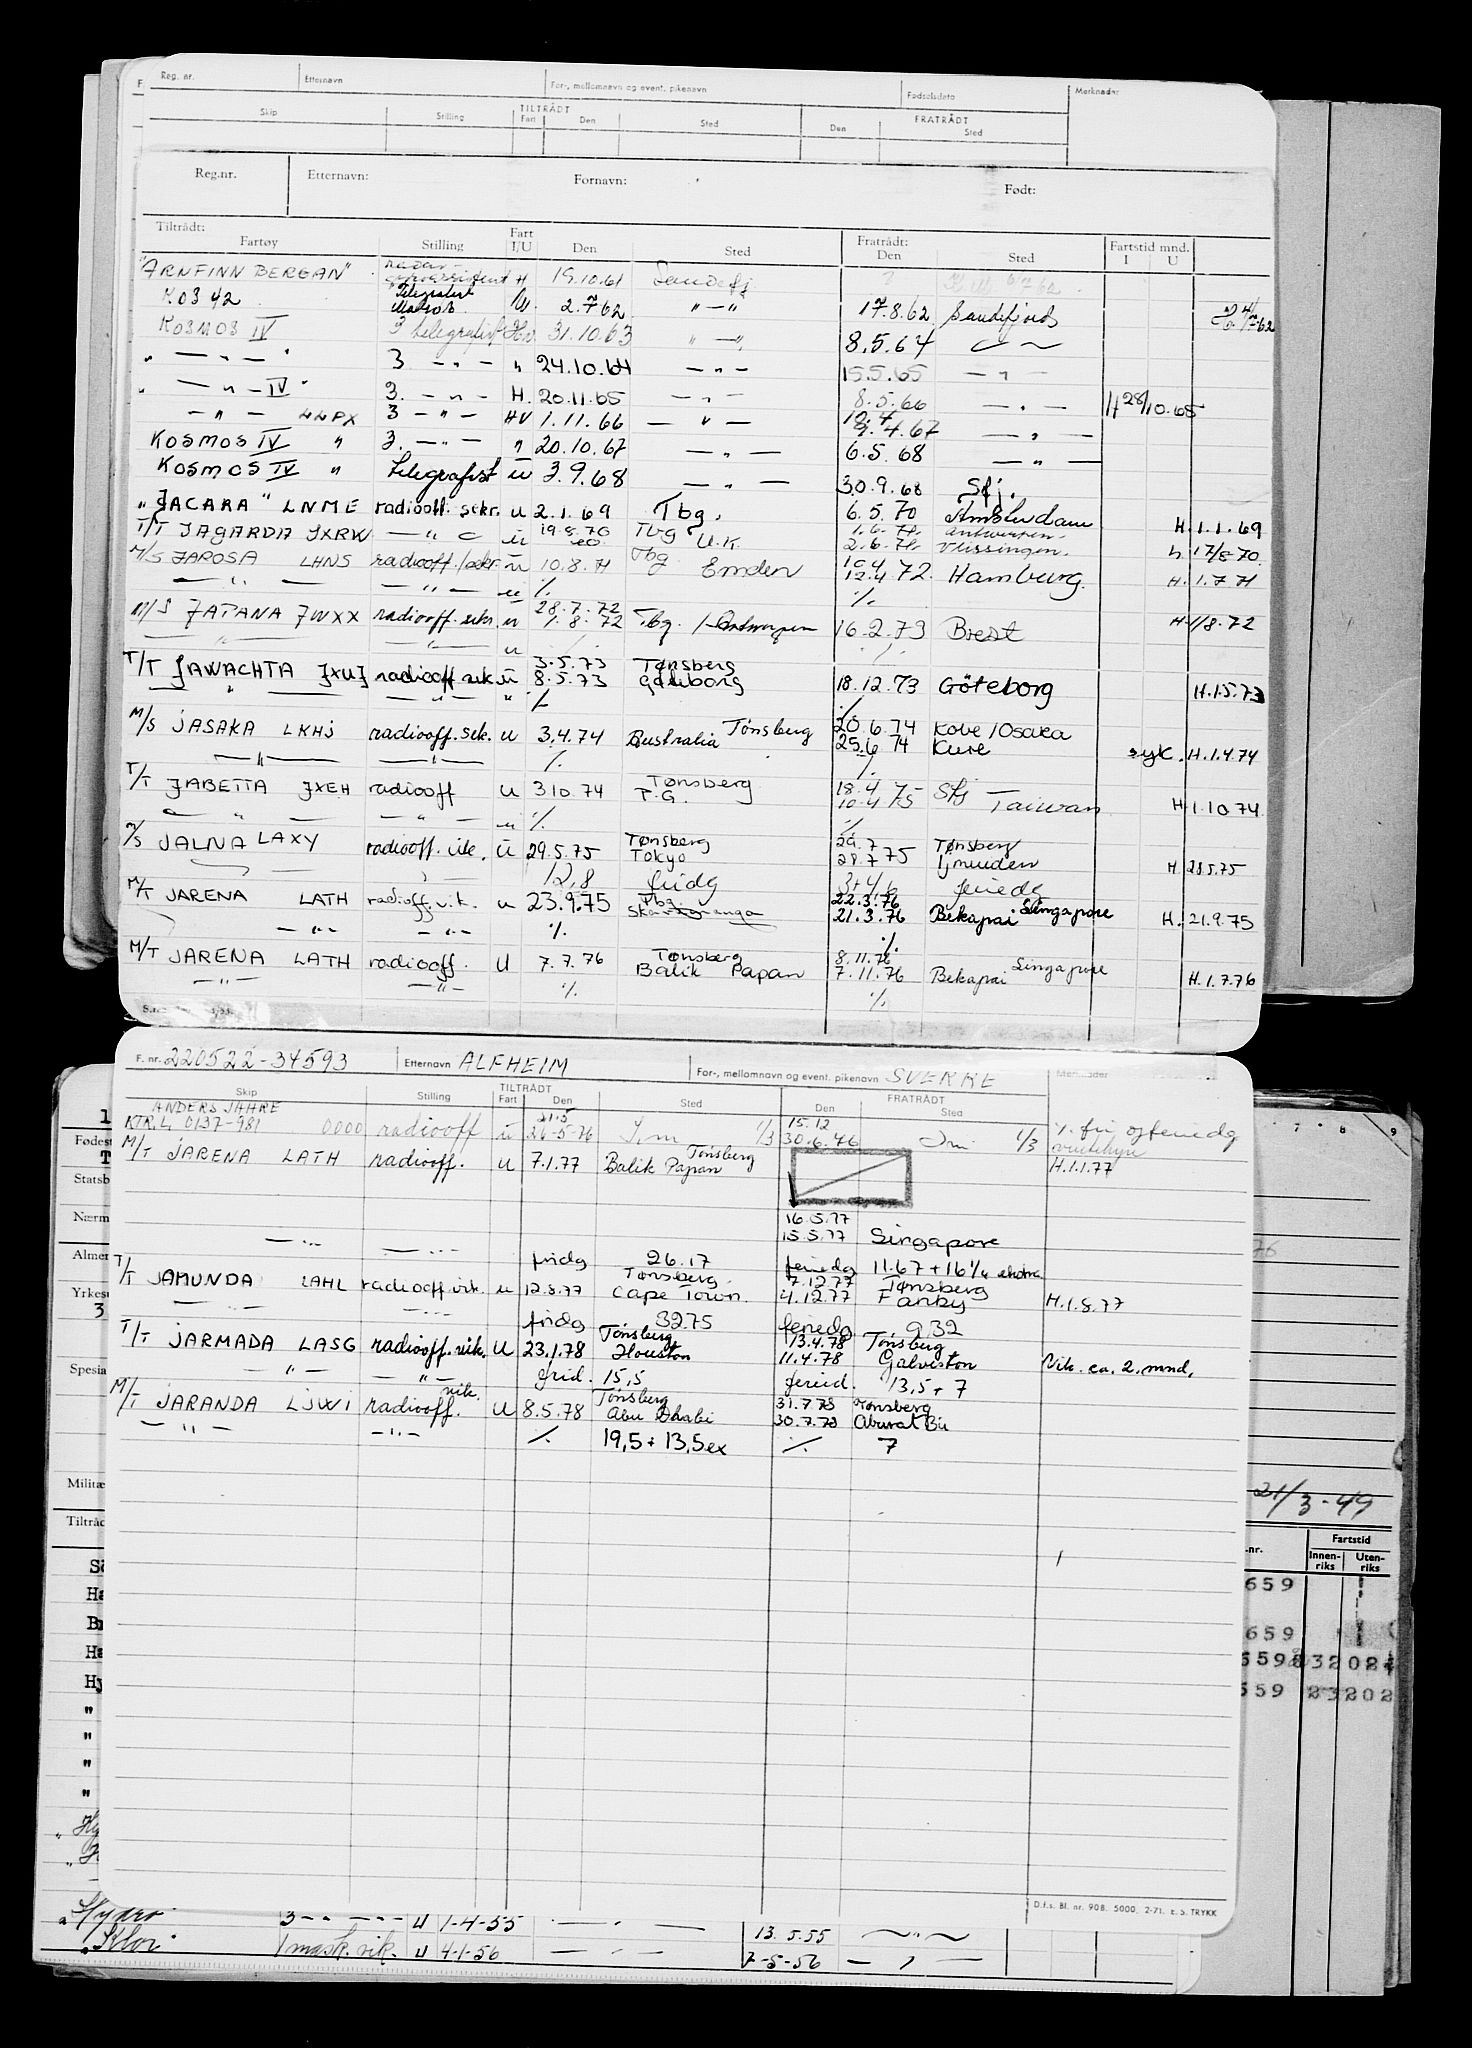 Reg. nr. Etternavn For-, mellomnavn og event. pikenavn Fødselsdato Merknader
Skip Stilling TILTRÅDT Fart Den Sted FRATRÅDT Den Sted
Reg.nr. Etternavn: Fornavn: Født:
Tiltrådt: Fratrådt: Fartstid mnd.
Fartøy Stilling Fart I/U Den Sted Den Sted I U
"ARNFINN BERGAN" H 19.10.61 Sandefj.
KOS 42 Telegrafist Matros 2.7.62 " — " 17.8.62 Sandefjord
KOSMOS IV 3 telegrafist 31.10.63 " — " 8.5.64
" — " — " 3 — " — " 24.10.64 — " — 15.5.65 — " —
" — " — IV " 3. — " — H. 20.11.65 — " — 8.5.66 — " — H 28/10.65
— " — LLPX 3 — " — HV 1.11.66 — " — 12.4 9.4.67 — " —
KOSMOS IV " 3. — " — " 20.10.67 — " — 6.5.68 — " —
KOSMOS IV " telegrafist u 3.9.68 — " — 30.9.68 Sfj.
"JACARA" LNME radiooff. sekr. u 2.1.69 Tbg. 6.5.70 Amsterdam H. 1.1.69
T/T JAGARDA JXRW — " — u 19.8.70 Tbg U.K. 2.6.71 Antwerpen Vlissingen. h. 17/8-70
M/S JAROSA LHNS radiooff/sekr. u 10.8.71 Tbg Emden 12.4.72 Hamburg. H. 1.7.71
— " — — " — u ./. ./.
M/S JATANA JWXX radiooff. sekr. u 28.7.72 1.8.72 Tbg. / Antwerpen 16.2.73 Brest H. 1/8.72
— " — — " — u ./.
T/T JAWACHTA JXUJ radiooff sek. u 3.5.73 8.5.73 Tønsberg Gøteborg 18.12.73 Göteborg H.1.5.73
— " — — " — " ./. ./.
M/S JASAKA LKHJ radiooff. sek. u 3.4.74 Australia Tønsberg 20.6.74 25.6.74 Kobe / Osaka Kure syk. H.1.4.74
— " — — " — ./. ./.
T/T JABETTA JXEH radiooff u 3.10.74 Tønsberg P.G. 18.4 10.4.75 Sfj Taiwan H 1.10.74
— " — — " — u ./. ./.
M/S JALNA LAXY radiooff. vik. u 29.5.75 Tønsberg Tokyo 29.7 28.7.75 Tønsberg Ijmuiden H. 28.5.75
12,8 fridg 3+4/6 feriedg
M/T JARENA LATH radioff. vik. u 23.9.75 Tbg. 22.3.76 21.3.76 Bekapai Singapore H. 21.9.75
— " — — " — ./. ./.
M/T JARENA LATH radiooff. U 7.7.76 Tønsberg Balik Papan 8.11.76 7.11.76 Bekapai Singapore H. 1.7.76
— " — — " — ./. ./.
F. nr. 220522-34593 Etternavn ALFHEIM For-, mellomnavn og event. pikenavn SVERRE Merknader
Skip Stilling TILTRÅDT Fart Den Sted FRATRÅDT Den Sted
ANDERS JAHRE 31.5 15.12
KTR.L. 0137-981 0000 radiooff u 26-5-76 1/3 30.6.46 1/3 ./. fri og feriedg
M/T JARENA LATH radiooff. u 7.1.77 Balik Papan Tønsberg H.1.1.77
16.5.77
15.5.77 Singapore
— " — — " — fridg 26.17 feriedg 11.67 + 16 1/4 ekstra
T/T JAMUNDA LAHL radiooff vik. u 12.8.77 Tønsberg Cape Town. 7.12.77 4.12.77 Tønsberg H.1.8.77
— " — — " — fridg 32.75 feriedg 9.32
T/T JARMADA LASG radiooff. vik. U 23.1.78 Tønsberg Houston 13.4.78 11.4.78 Tønsberg Galveston Vik. ca. 2. mnd.
— " — — " — frid. 15,5 feried. 13,5 + 7
M/T JARANDA LJWI radiooff. vik. U 8.5.78 Tønsberg Abu Dhabi 31.7.78 30.7.78 Tønsberg
— " — — " — ./. 19,5 + 13,5 ex ./. 7
D.f.s. Bl. nr. 908. 5000. 2-71. E.S. TRYKK
Statsb
Nærm
Almer
Spesia
Militæ
Tiltråd
7 8 9
21/3-49
nr. Fartstid
Innen-riks Uten-riks
659
659
Hydro 3 — " — u 1-4-55 — " — 13.5.55 — " —
"Klor" 1 mask. vik. u 4-1-56 — " — 7-5-56 — " —